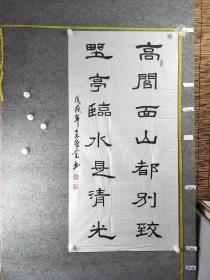 高閣面山都別致
野亭臨水是清光
戊戌年
書